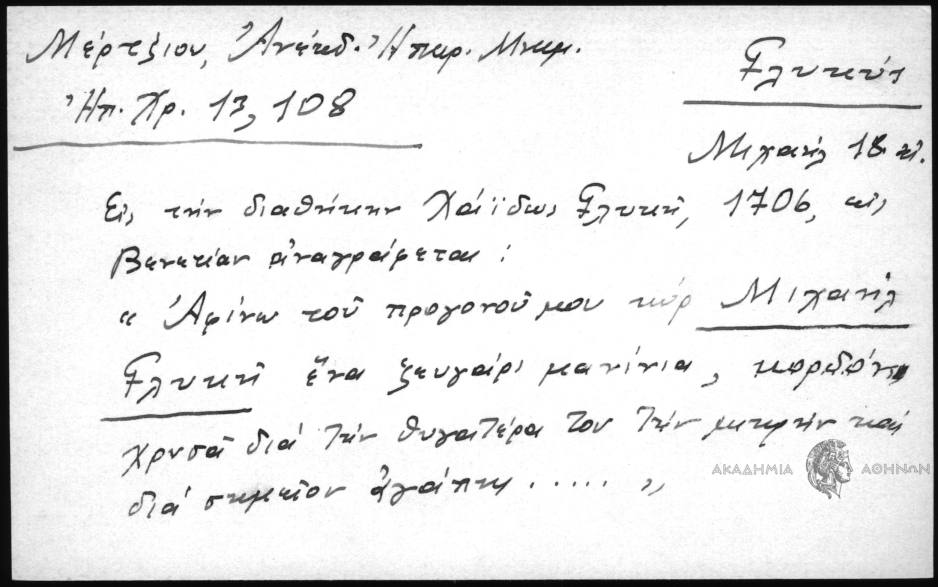 Μέρτζιου, Ἀνέκδ. Ἠπειρ. Μνημ.
Ἠπ. Χρ. 13, 108
Γλυκύς
Μιχαήλ 18 αἰ.
Εἰς τήν διαθήκην Χάϊδως Γλυκῆ, 1706, εἰς
Βενετίαν ἀναγράφεται :
« Ἀφίνω τοῦ προγονοῦ μου κύρ Μιχαήλ
Γλυκῆ ἕνα ζευγάρι μανίνια, κορδόνι
χρυσᾶ διά τήν θυγατέρα του τήν μικρήν καί
διά σημεῖον ἀγάπης ..... »
ΑΚΑΔΗΜΙΑ ΑΘΗΝΩΝ